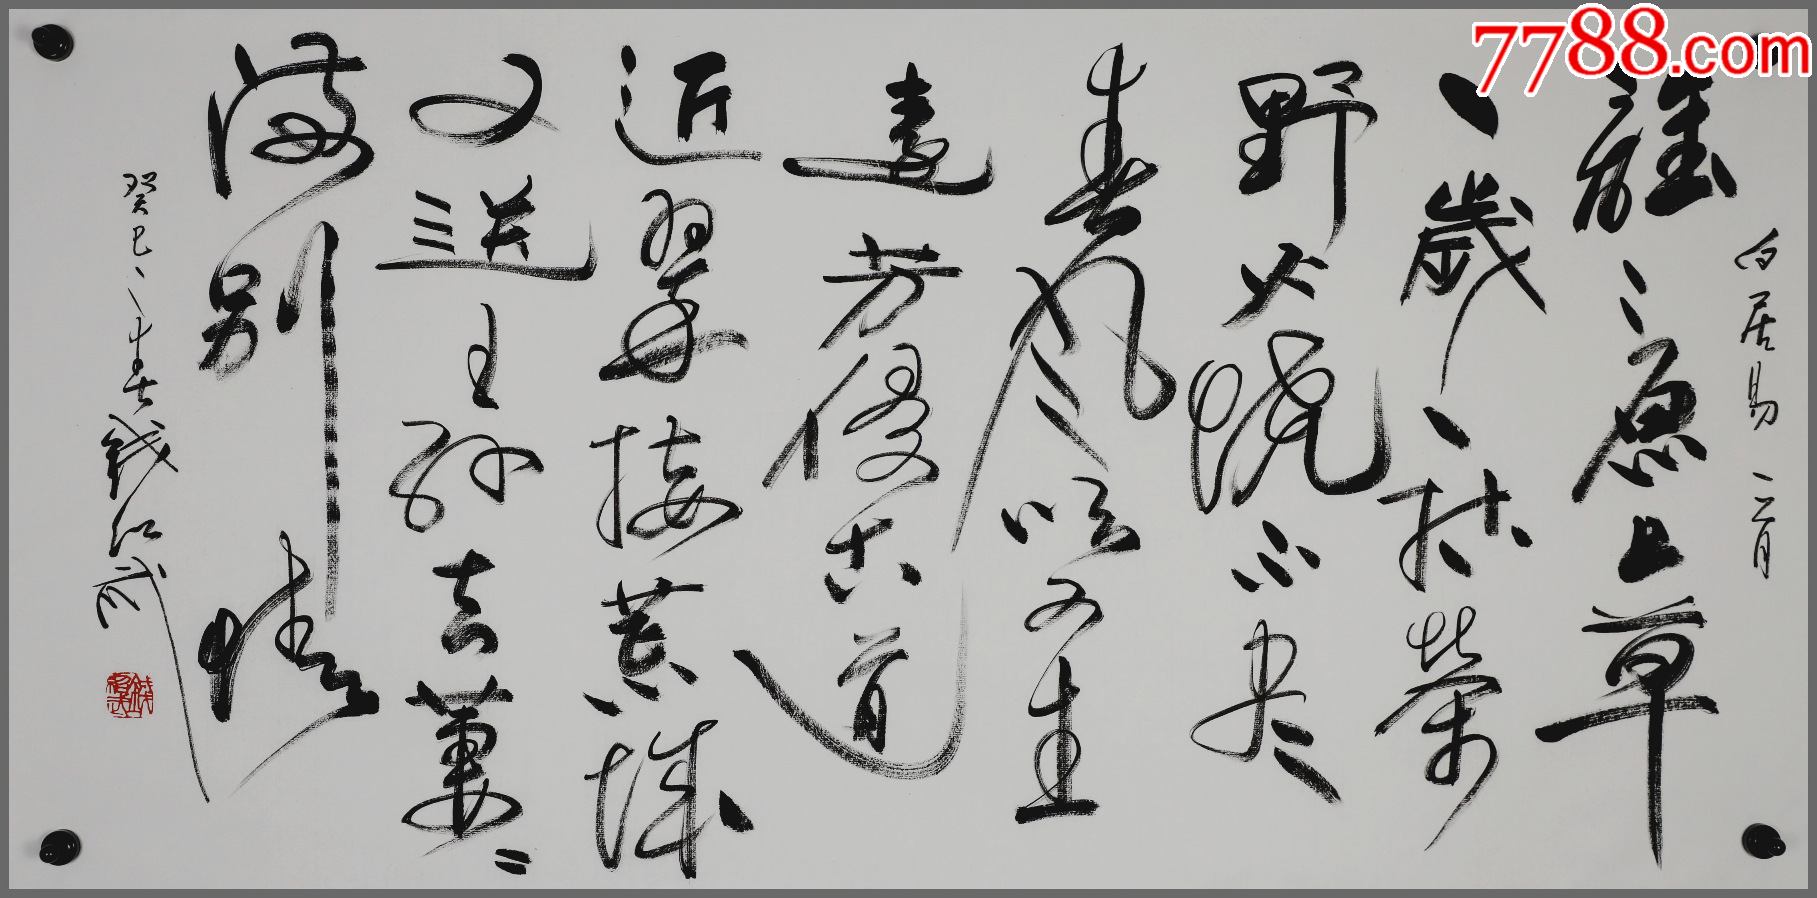 白居易 二月
離〻原上草
一歲一枯榮
野火燒不尽
春风吹又生
遠芳侵古道
近翠接荒城
又送王孫去萋〻
滿別情
癸巳之春錢紹武
7788.com